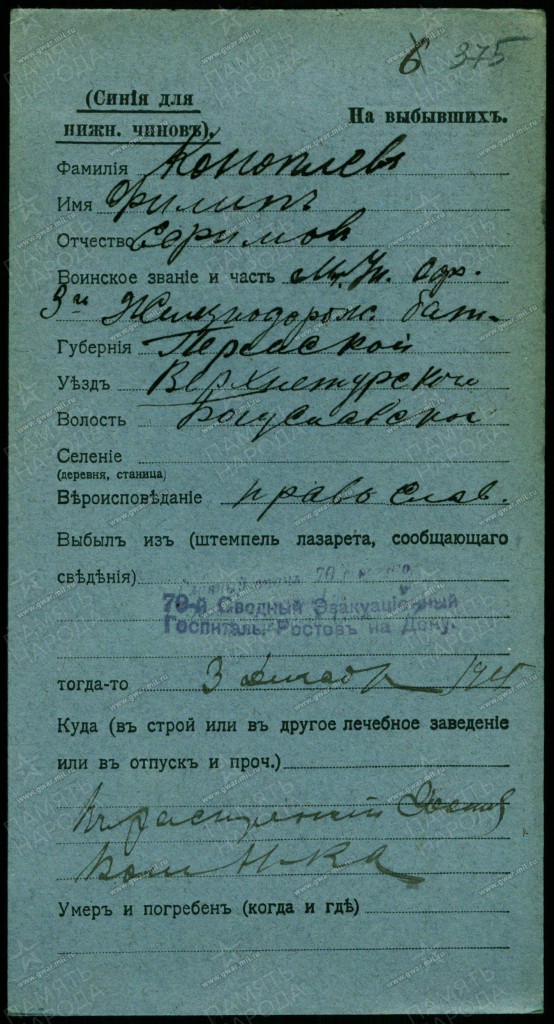 6 375
(Синія для
нижн. чиновъ).
На выбывшихъ.
Фамилія Коноплевъ
Имя Филипъ
Отчество Ефимов
Воинское званіе и часть Мл. Ун. Офр.
3й Железнодорож. бат.
Губернія Пермской
Уѣздъ Верхнетурского
Волость Богуславской
Селеніе
(деревня, станица)
Вѣроисповѣданіе православ.
Выбылъ из (штемпель лазарета, сообщающаго
свѣдѣнія)
79-й Сводный Эвакуаціонный
Госпиталь Ростов на Дону.
тогда-то 3 декабр 1915
Куда (въ строй или въ другое лечебное заведеніе
или въ отпускъ и проч.)
Умеръ и погребенъ (когда и гдѣ)